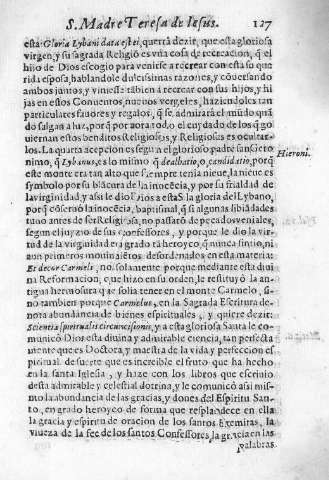 S. Madre Teresa de Iesus. 127
esta: Gloria Lybani data est ei, querrà dezir, que esta gloriosa
virgen, y su sagrada Religiõ es viña cosa de recreacion, q̃ el
hijo de Dios escogio para venirse a recrear con esta so que
rida esposa, hablandole dulcissimas razones, y cõuersando
ambos juntos, y vinieste tãbien à recrear con sus hijos, y hi
jas en estos Conuentos, nueuos vergeles, haziendoles tan
particulares fauores y regalos, q̃ se admirarà el mũdo quã
do salgan a luz, porq̃ por aora todo el cuydado de los q̃ go
uiernan estos benditos Religiosos, y Religiosas es ocultar-
los. La quarta acepcion es segun el glorioso padre san Gero
nimo, q̃ Lybanus, es lo mismo q̃ dealbatio, o candidatio, porq̃
Hieroni.
este monte era tan alto que siempre tenia nieue, la nieue es
symbolo por su blãcura de la inocẽcia, y por su frialdad de
la virginidad, y assi le dio Dios a esta S. la gloria del Lybano,
porq̃ cõseruò la inocẽcia, baptismal, q̃ si algunas libiãdades
tuuo antes de ser Religiosa, no passarõ de pecados veniales,
segun el juyzio de sus confessores, y porque le dio la vir
tud de la virginidad en grado tã heroyco, q̃ nunca sintio, ni
aun primeros mouimiẽtos desordenados en esta materia:
Et decor Carmeli, no solamente porque mediante esta diui
na Reformacion, que hizo en su orden, le restituyò la an-
tigua hermosura que solia tener en el monte Carmelo, si-
no tambien porque Carmelus, en la Sagrada Escritura de-
nota abundancia de bienes espirituales, y quiere dezir:
Scientia spiritualis circuncisionis, y a esta gloriosa Santa le co-
municò Dios esta diuina y admirable ciencia, tan perfecta
mente que es Doctora, y maestra de la vida y perfeccion es
piritual, de suerte que es increible el fruto que ha hecho
en la santa Iglesia, y haze con los libros que escriuio
desta admirable y celestial dotrina, y le comunicò assi mis-
mo la abundancia de las gracias, y dones del Espiritu San-
to, en grado heroyco de forma que resplandece en ella
la gracia y espiritu de oracion de los santos Eremitas, la
viueza de la fee de los santos Confessores, la gracia en las
palabras